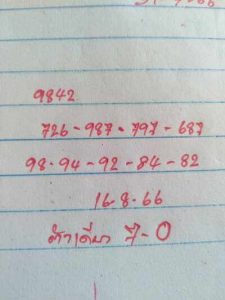 9842
726 - 987 - 797 - 687
98 - 94 - 92 - 84 - 82
16.8.66
ตัวเดียว 7-0